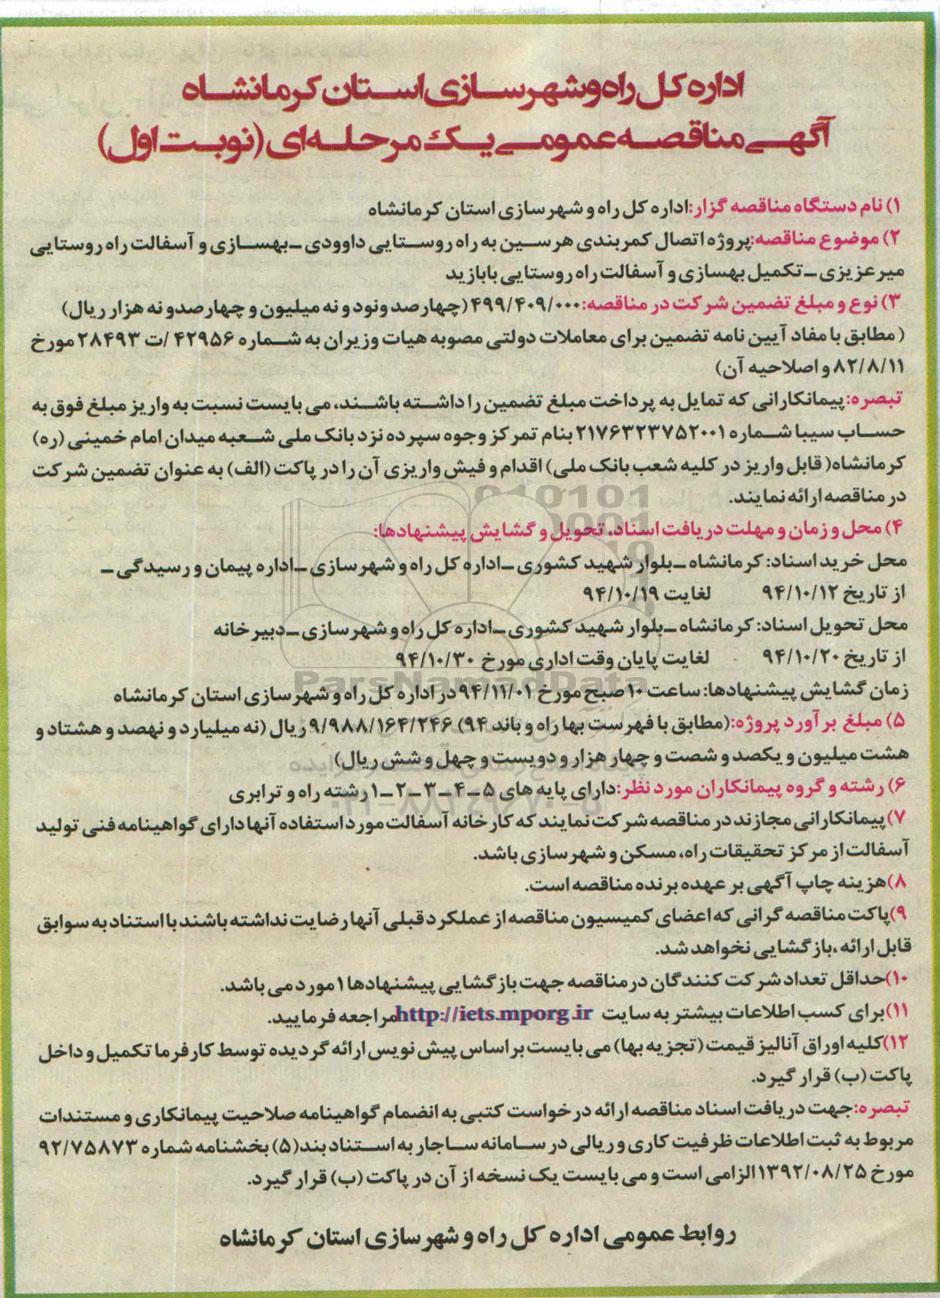 اداره کل راه و شهرسازی استان کرمانشاه
آگهی مناقصه عمومی یک مرحله ای (نوبت اول)
۱) نام دستگاه مناقصه گزار: اداره کل راه و شهرسازی استان کرمانشاه
۲) موضوع مناقصه: پروژه اتصال کمربندی هرسین به راه روستایی داوودی ـ بهسازی و آسفالت راه روستایی
میرعزیزی ـ تکمیل بهسازی و آسفالت راه روستایی بابازید
۳) نوع و مبلغ تضمین شرکت در مناقصه: ۴۹۹/۴۰۹/۰۰۰ (چهارصد ونود و نه میلیون و چهارصدو نه هزار ریال)
(مطابق با مفاد آیین نامه تضمین برای معاملات دولتی مصوبه هیات وزیران به شماره ۴۲۹۵۶ /ت ۲۸۴۹۳ مورخ
۸۲/۸/۱۱ و اصلاحیه آن)
تبصره: پیمانکارانی که تمایل به پرداخت مبلغ تضمین را داشته باشند، می بایست نسبت به واریز مبلغ فوق به
حساب سیبا شماره ۲۱۷۶۳۲۳۷۵۲۰۰۱ بنام تمرکز وجوه سپرده نزد بانک ملی شعبه میدان امام خمینی (ره)
کرمانشاه( قابل واریز در کلیه شعب بانک ملی) اقدام و فیش واریزی آن را در پاکت (الف) به عنوان تضمین شرکت
در مناقصه ارائه نمایند.
۴) محل و زمان و مهلت دریافت اسناد، تحویل و گشایش پیشنهادها:
محل خرید اسناد: کرمانشاه ـ بلوار شهید کشوری ـ اداره کل راه و شهرسازی ـ اداره پیمان و رسیدگی ـ
از تاریخ ۹۴/۱۰/۱۲ لغایت ۹۴/۱۰/۱۹
محل تحویل اسناد: کرمانشاه ـ بلوار شهید کشوری ـ اداره کل راه و شهرسازی ـ دبیرخانه
از تاریخ ۹۴/۱۰/۲۰ لغایت پایان وقت اداری مورخ ۹۴/۱۰/۳۰
ParsNamadData
زمان گشایش پیشنهادها: ساعت ۱۰ صبح مورخ ۹۴/۱۱/۰۱ در اداره کل راه و شهرسازی استان کرمانشاه
۵) مبلغ برآورد پروژه: (مطابق با فهرست بها راه و باند ۹۴) ۹/۹۸۸/۱۶۴/۲۴۶ ریال (نه میلیارد و نهصد و هشتاد و
هشت میلیون و یکصد و شصت و چهار هزار و دویست و چهل و شش ریال)
۶) رشته و گروه پیمانکاران مورد نظر: دارای پایه های ۵ ـ ۴ ـ ۳ ـ ۲ ـ ۱ رشته راه و ترابری
۷) پیمانکارانی مجازند در مناقصه شرکت نمایند که کارخانه آسفالت مورد استفاده آنها دارای گواهینامه فنی تولید
آسفالت از مرکز تحقیقات راه، مسکن و شهرسازی باشد.
۸) هزینه چاپ آگهی بر عهده برنده مناقصه است.
۹) پاکت مناقصه گرانی که اعضای کمیسیون مناقصه از عملکرد قبلی آنها رضایت نداشته باشند با استناد به سوابق
قابل ارائه ، بازگشایی نخواهد شد.
۱۰) حداقل تعداد شرکت کنندگان در مناقصه جهت بازگشایی پیشنهادها ۱ مورد می باشد.
۱۱) برای کسب اطلاعات بیشتر به سایت http://iets.mporg.ir مراجعه فرمایید.
۱۲) کلیه اوراق آنالیز قیمت (تجزیه بها) می بایست بر اساس پیش نویس ارائه گردیده توسط کارفرما تکمیل و داخل
پاکت (ب) قرار گیرد.
تبصره: جهت دریافت اسناد مناقصه ارائه درخواست کتبی به انضمام گواهینامه صلاحیت پیمانکاری و مستندات
مربوط به ثبت اطلاعات ظرفیت کاری و ریالی در سامانه ساجار به استناد بند (۵) بخشنامه شماره ۹۲/۷۵۸۷۳
مورخ ۱۳۹۲/۰۸/۲۵ الزامی است و می بایست یک نسخه از آن در پاکت (ب) قرار گیرد.
روابط عمومی اداره کل راه و شهرسازی استان کرمانشاه